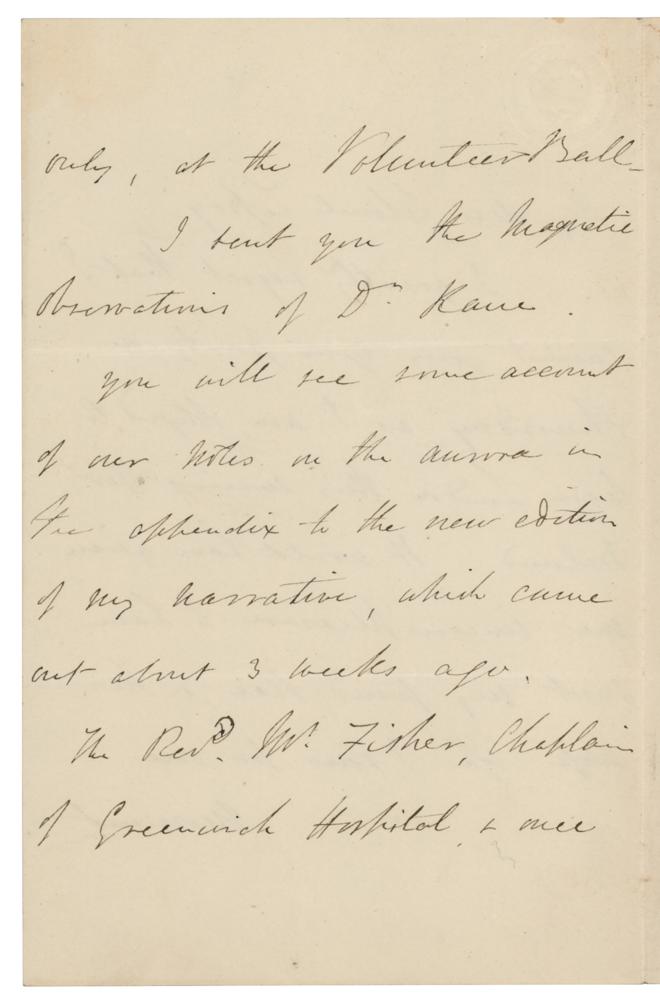 only, at the Volunteer Ball-
I sent you the Magnetic
Observations of Dr Kane.
you will see some account
of our notes on the aurora in
the appendix to the new edition
of my narrative, which came
out about 3 weeks ago.
The Revd. Mr. Fisher, Chaplain
of Greenwich Hospital, & once